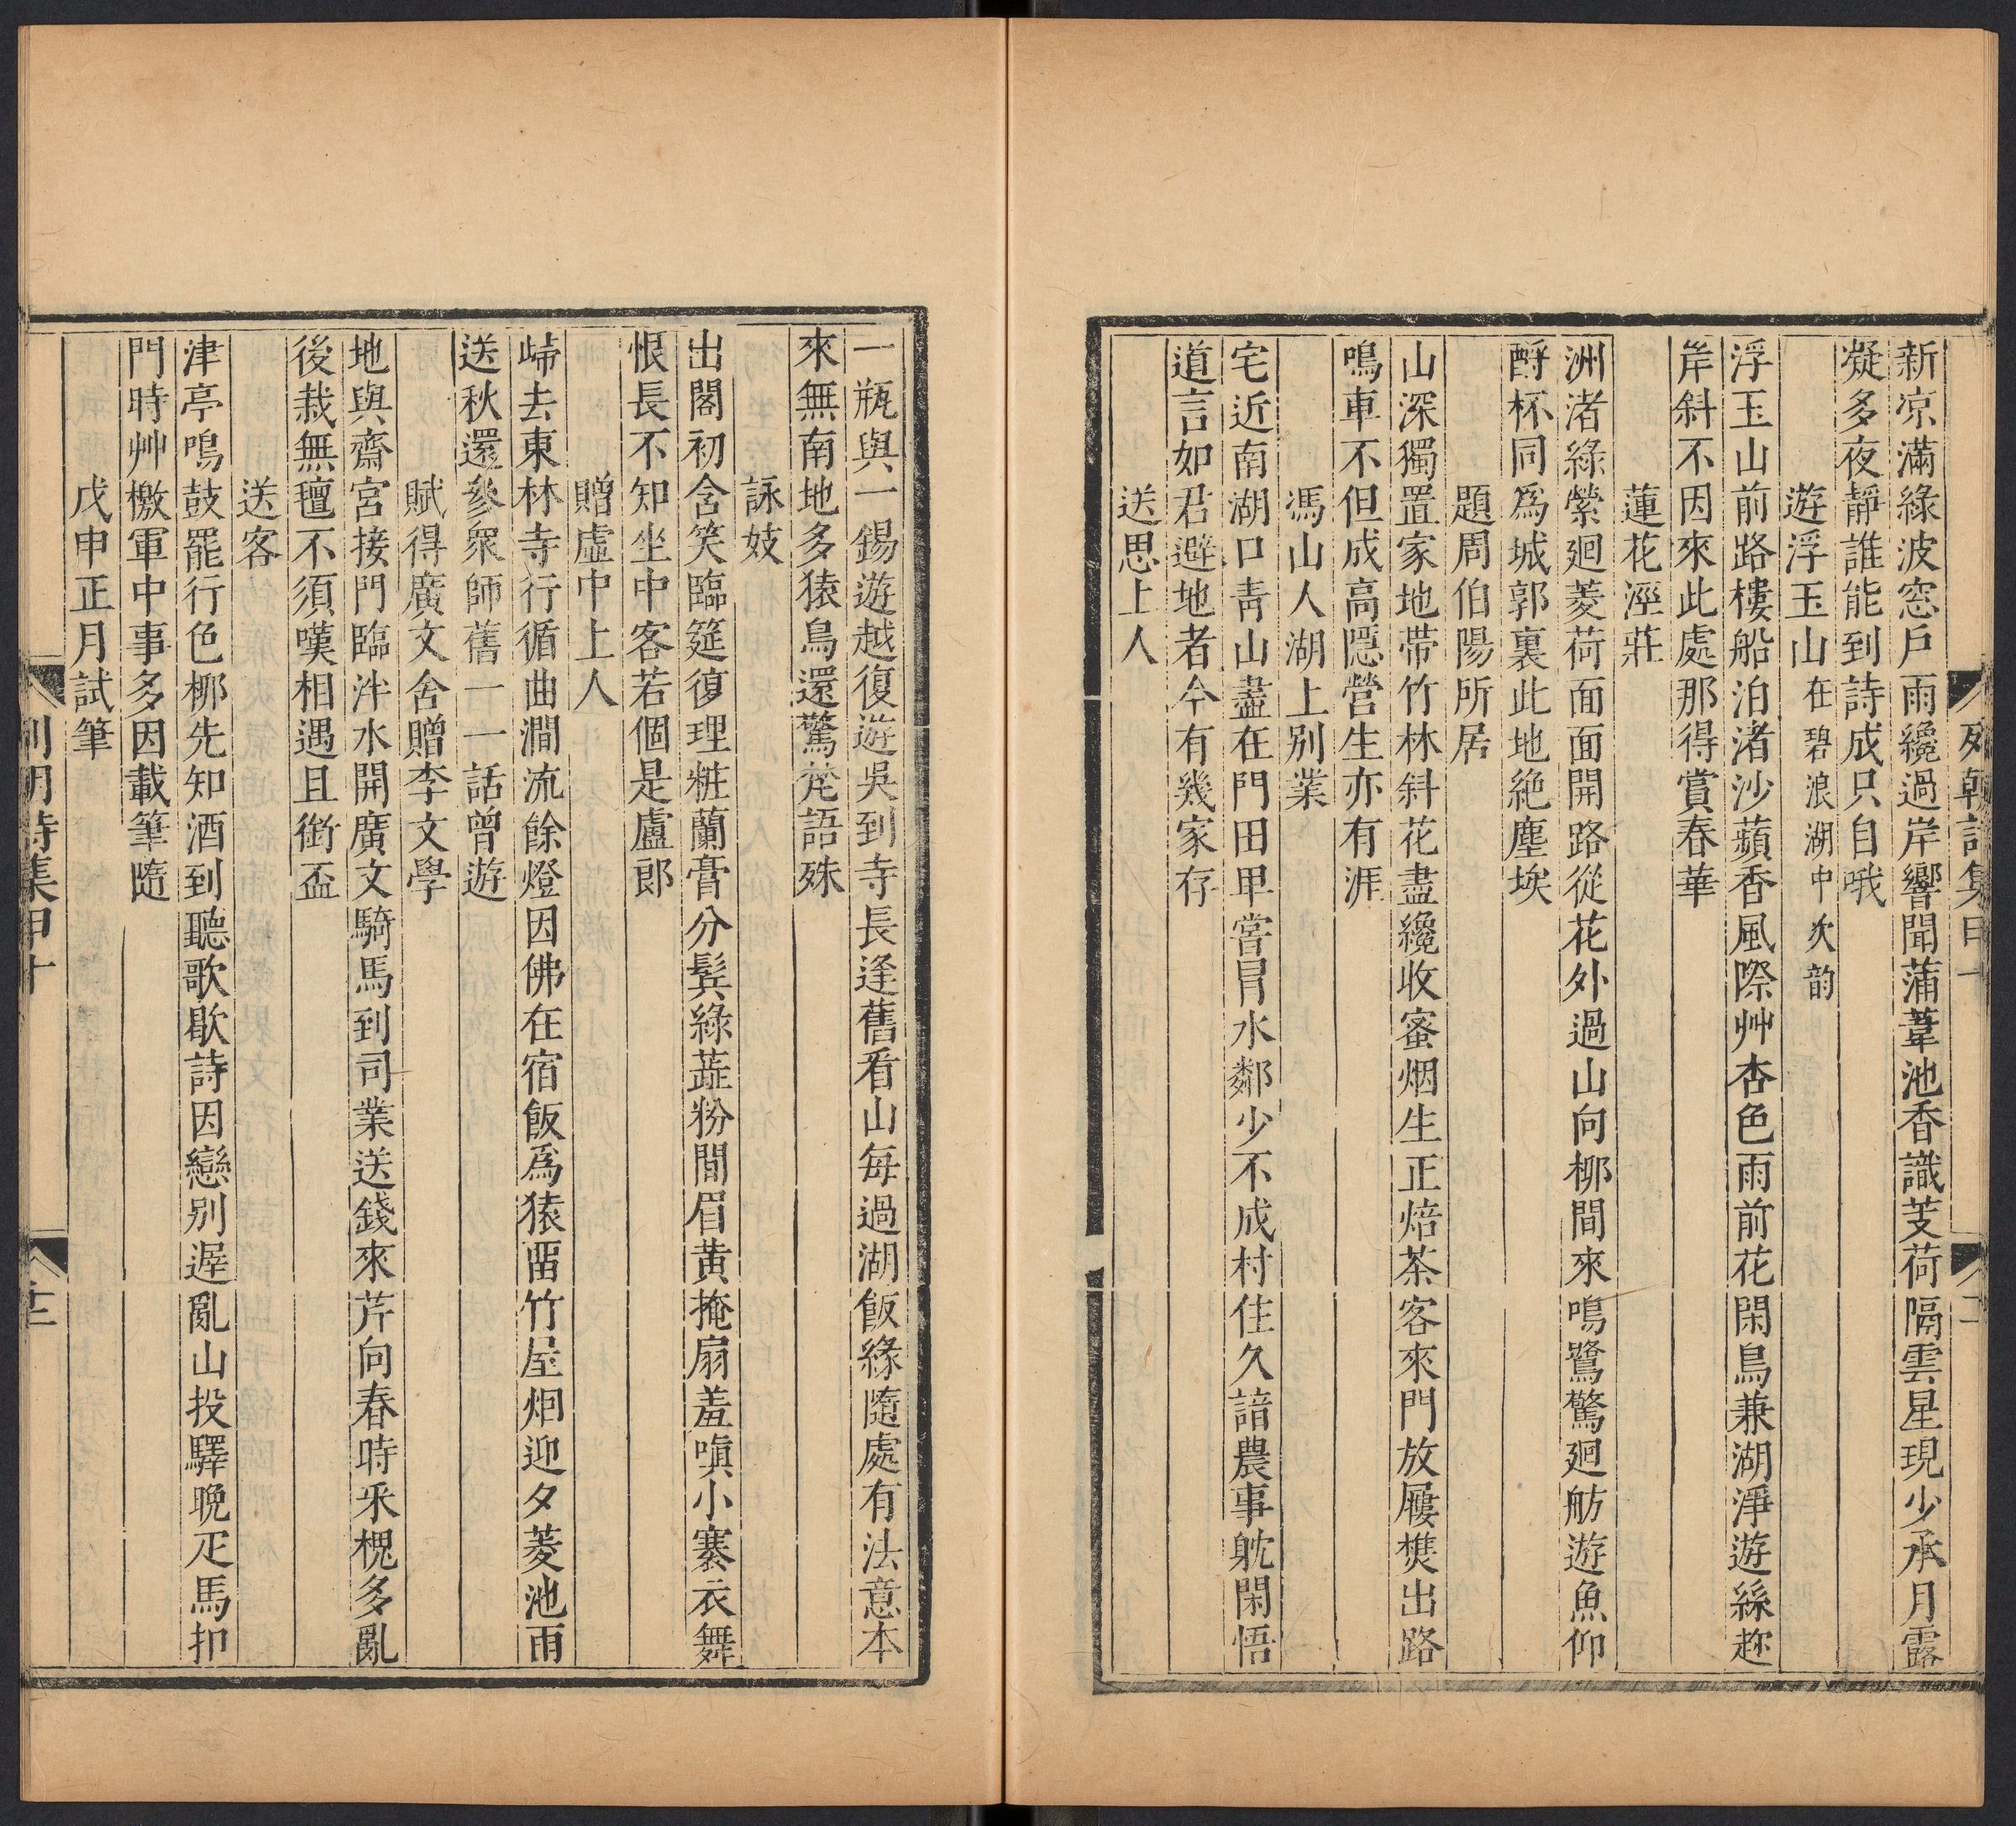 新凉滿綠波窓戶雨纔過岸響聞蒲葦池香識芰荷隔雲星現少承月露
凝多夜靜誰能到詩成只自哦
遊浮玉山在碧浪湖中次韵
浮玉山前路樓船泊渚沙蘋香風際艸杏色雨前花閑鳥兼湖淨遊絲趂
岸斜不因來此處那得賞春華
蓮花涇莊
洲渚綠縈廻菱荷面面開路從花外過山向桺間來鳴鷺驚廻舫遊魚仰
酹杯同爲城郭裏此地絶塵埃
題周伯陽所居
山深獨置家地帶竹林斜花盡纔收蜜烟生正焙茶客來門放屨樊出路
鳴車不但成高隱營生亦有涯
馮山人湖上別業
宅近南湖口靑山盡在門田𤰞嘗冐水鄰少不成村住久諳農事躭閑悟
道言如君避地者今有幾家存
送思上人
一瓶與一錫遊越復遊吳到寺長逢舊看山每過湖飯緣隨處有法意本
來無南地多猿鳥還驚梵語殊
詠妓
出閣初含笑臨筵復理粧蘭膏分鬂綠蕋粉間眉黄掩扇羞嗔小褰衣舞
恨長不知坐中客若個是盧郎
贈虛中上人
歸去東林寺行循曲澗流餘燈因佛在宿飯爲猿畱竹屋烟迎夕菱池雨
送秋還參衆師舊一一話曾遊
賦得廣文舍贈李文學
地與齋宮接門臨泮水開廣文騎馬到司業送錢來芹向春時采槐多亂
後栽無氊不須嘆相遇且銜盃
送客
津亭鳴鼓罷行色桺先知酒到聽歌歇詩因戀別遲亂山投驛晚疋馬扣
門時艸檄軍中事多因載筆隨
戊申正月試筆
列朝詩集甲十